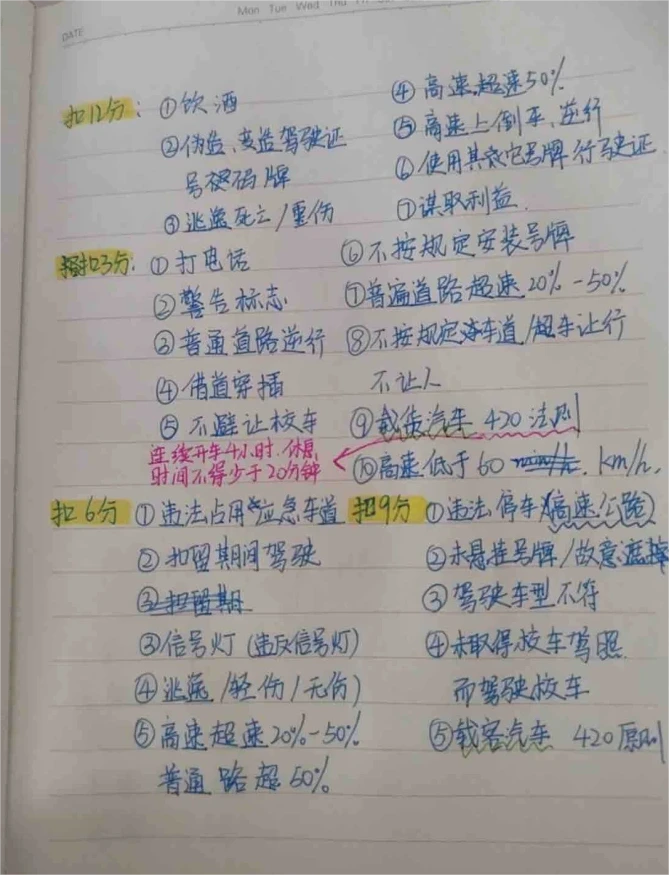 Mon Tue Wed Thu Fri
DATE
扣12分: ①饮酒
②伪造、变造驾驶证
号码牌
③逃逸死亡/重伤
④高速超速50%
⑤高速上倒车、逆行
⑥使用其它号牌 行驶证
⑦谋取利益.
扣3分: ①打电话
②警告标志
③普通道路逆行
④借道穿插
⑤不避让校车
连续开车4小时.休息
时间不得少于20分钟
⑥不按规定安装号牌
⑦普遍道路超速20%-50%
⑧不按规定车道/超车让行
不让人
⑨载货汽车 420法则
⑩高速低于60 km/h.
扣6分 ①违法占用应急车道
②扣留期间驾驶
③扣留期
③信号灯(违反信号灯)
④逃逸/轻伤/无伤)
⑤高速超速20%-50%
普通路超50%
扣9分 ①违法停车(高速公路)
②未悬挂号牌/故意遮挡
③驾驶车型不符
④未取得校车驾照
而驾驶校车
⑤载客汽车 420原则